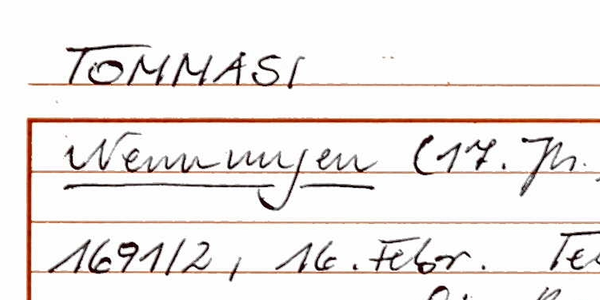 TOMMASI
Nennungen (17. Jh.,
1691/2, 16. Febr. Te